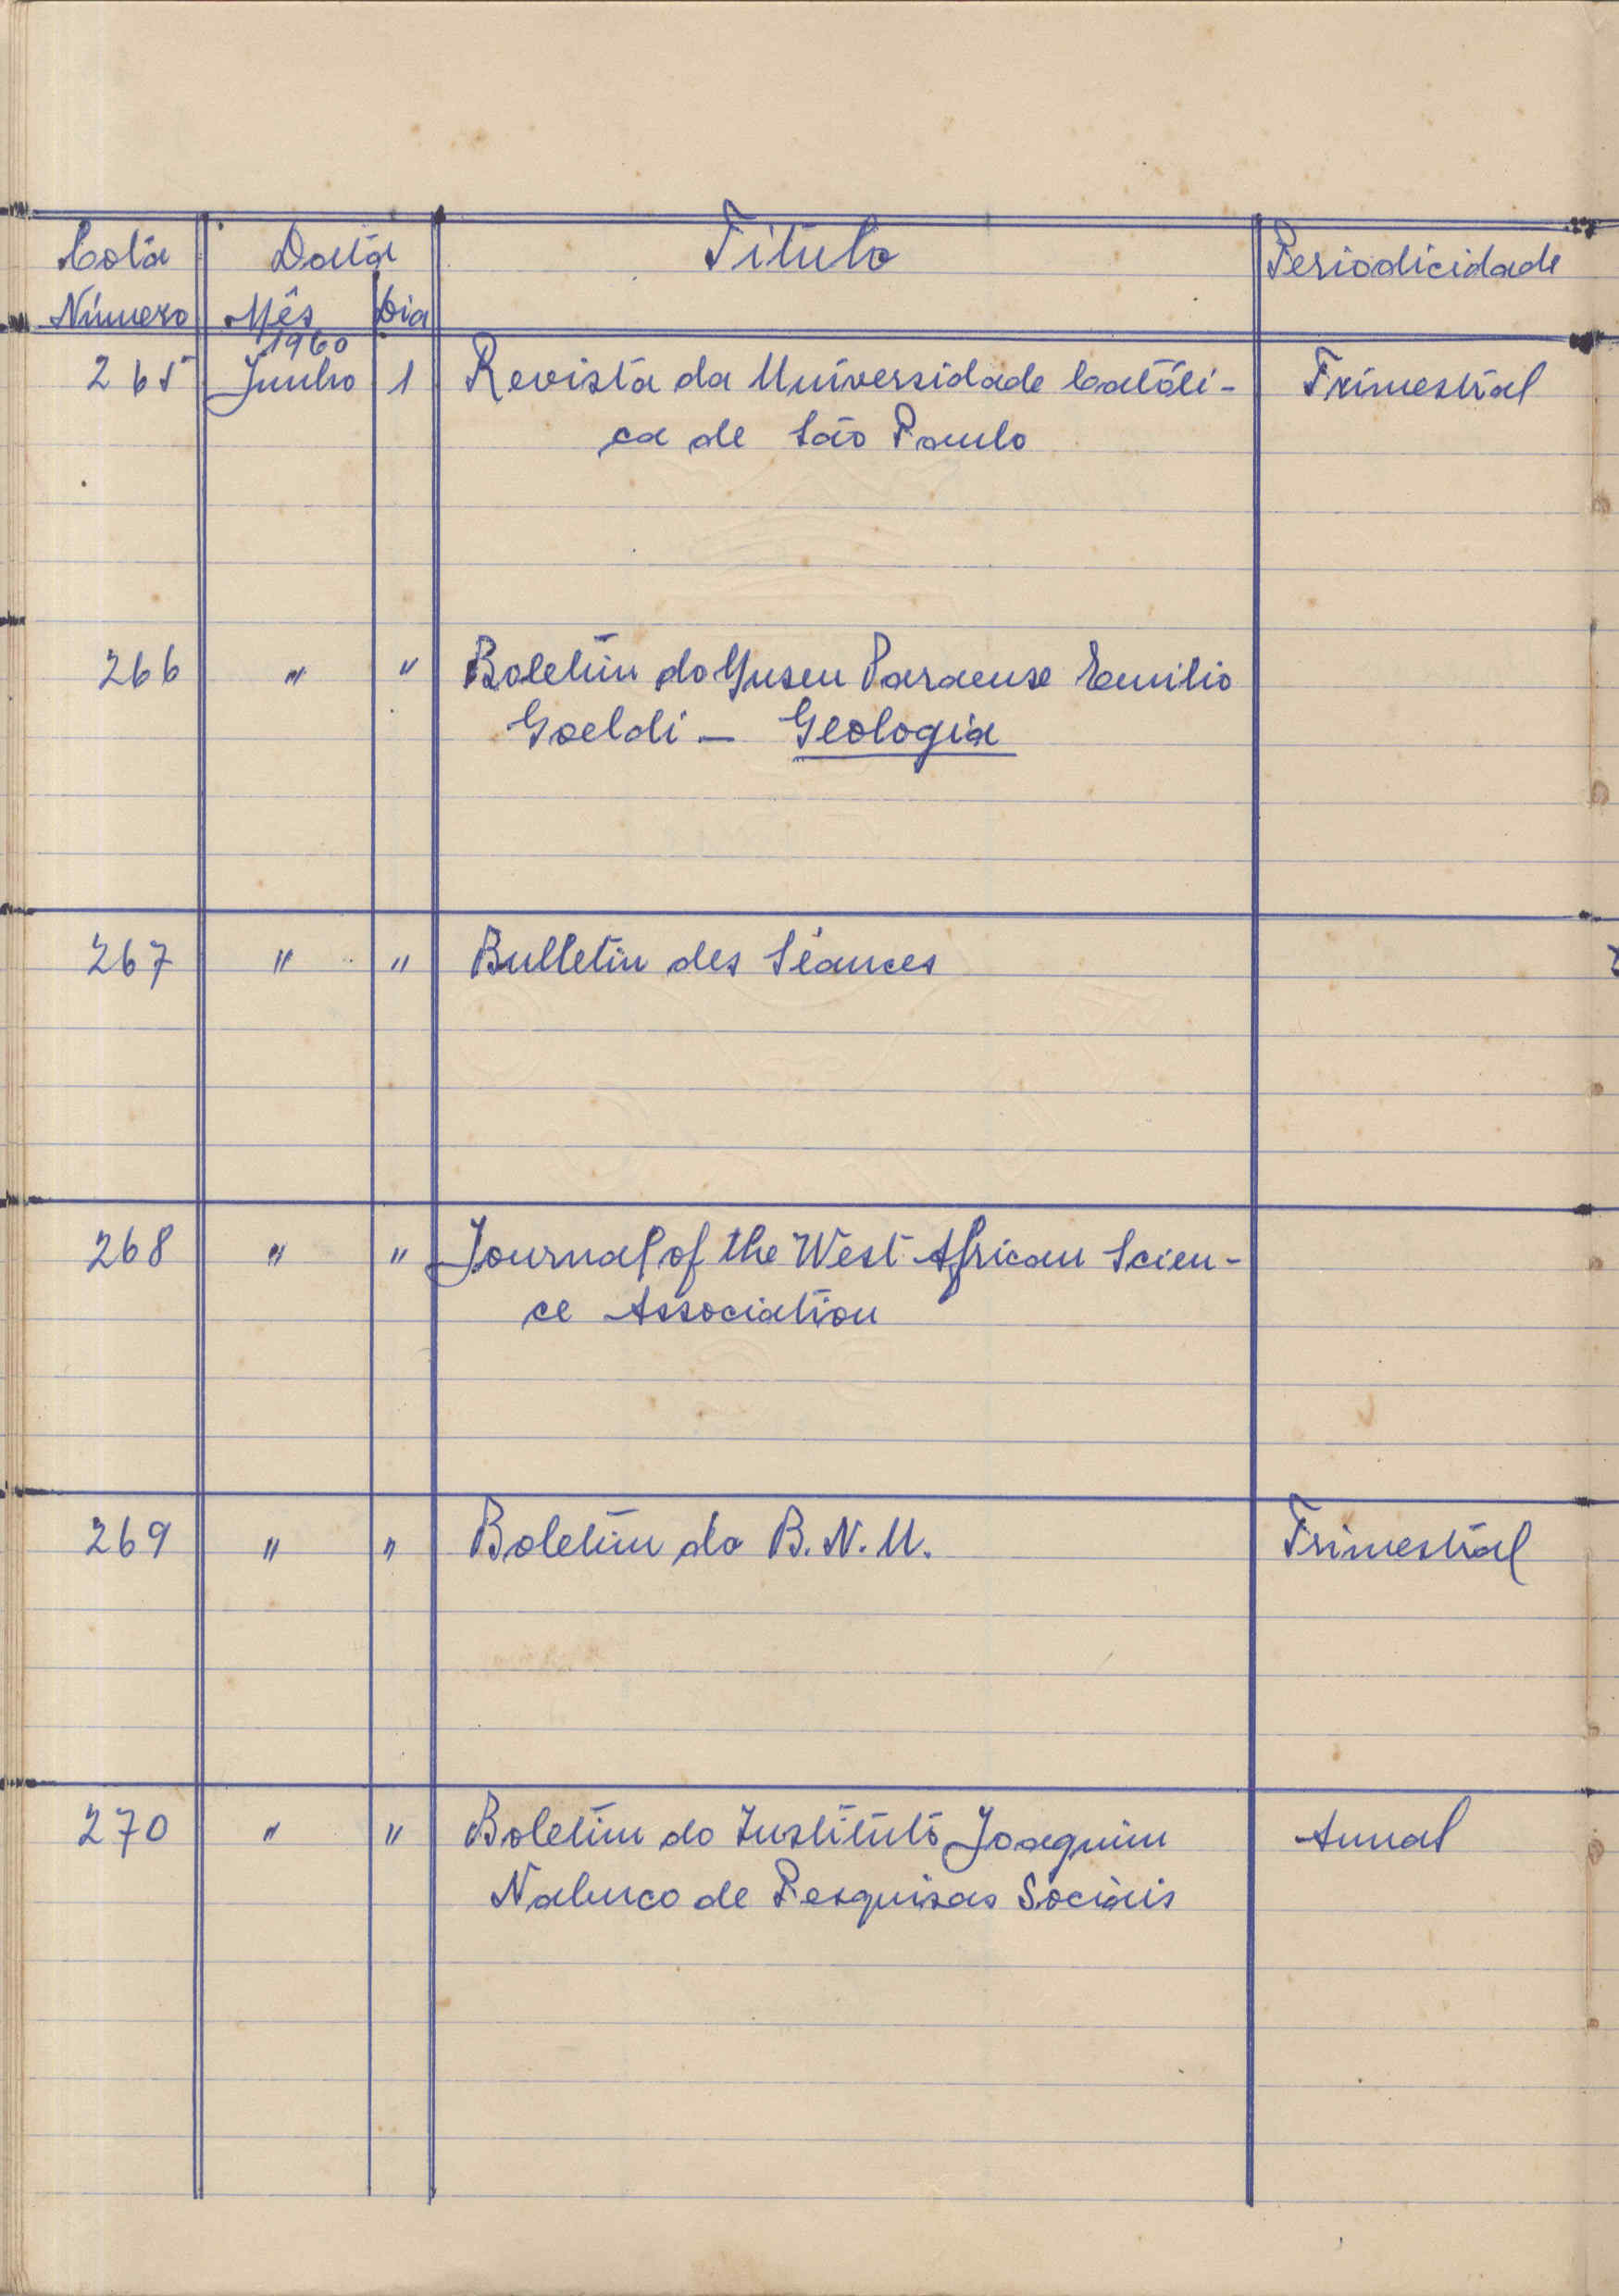 Cota Data Título Periodicidade
Número Mês Dia
1960
265 Junho 1 Revista da Universidade Católi- Trimestral
ca de São Paulo
266 " " Boletim do Museu Paraense Emilio
Goeldi — Geologia
267 " " Bulletin des Séances
268 " " Journal of the West African Scien-
ce Association
269 " " Boletim do B.N.U. Trimestral
270 " " Boletim do Instituto Joaquim Anual
Nabuco de Pesquisas Sociais